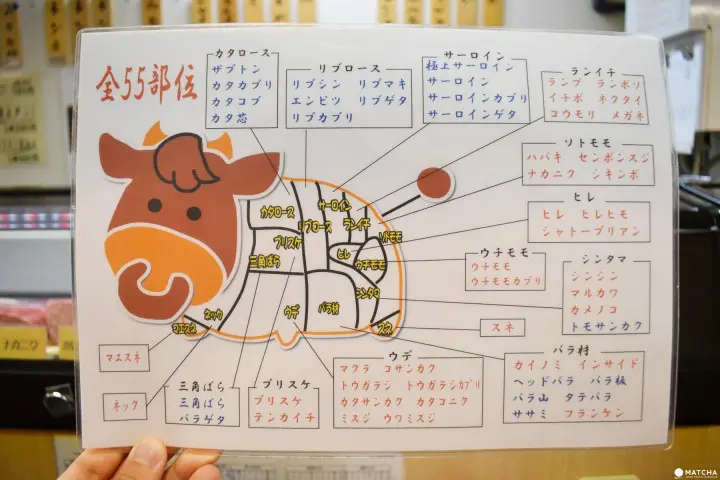 全55部位
カタロース
ザブトン
カタカブリ
カタコブ
カタ芯
リブロース
リブシン リブマキ
エンピツ リブゲタ
リブカブリ
サーロイン
極上サーロイン
サーロイン
サーロインカブリ
サーロインゲタ
ランイチ
ランプ ランボソ
イチボ ネクタイ
コウモリ メガネ
ソトモモ
ハバキ センボンスジ
ナカニク シキンボ
ヒレ
ヒレ ヒレヒモ
シャトーブリアン
ウチモモ
ウチモモ
ウチモモカブリ
シンタマ
シンシン
マルカワ
カメノコ
トモサンカク
スネ
カタロース
リブロース
サーロイン
ランイチ
ソトモモ
ブリスケ
ヒレ
ウチモモ
三角ばら
シンタマ
ネック
ウデ
バラ材
マエスネ
スネ
マエスネ
ネック
三角ばら
三角ばら
バラゲタ
ブリスケ
ブリスケ
テンカイチ
ウデ
マクラ コサンカク
トウガラシ トウガラシカブリ
カタサンカク カタコニク
ミスジ ウワミスジ
バラ材
カイノミ インサイド
ヘッドバラ バラ板
バラ山 タテバラ
ササミ フランケン
MATCHA